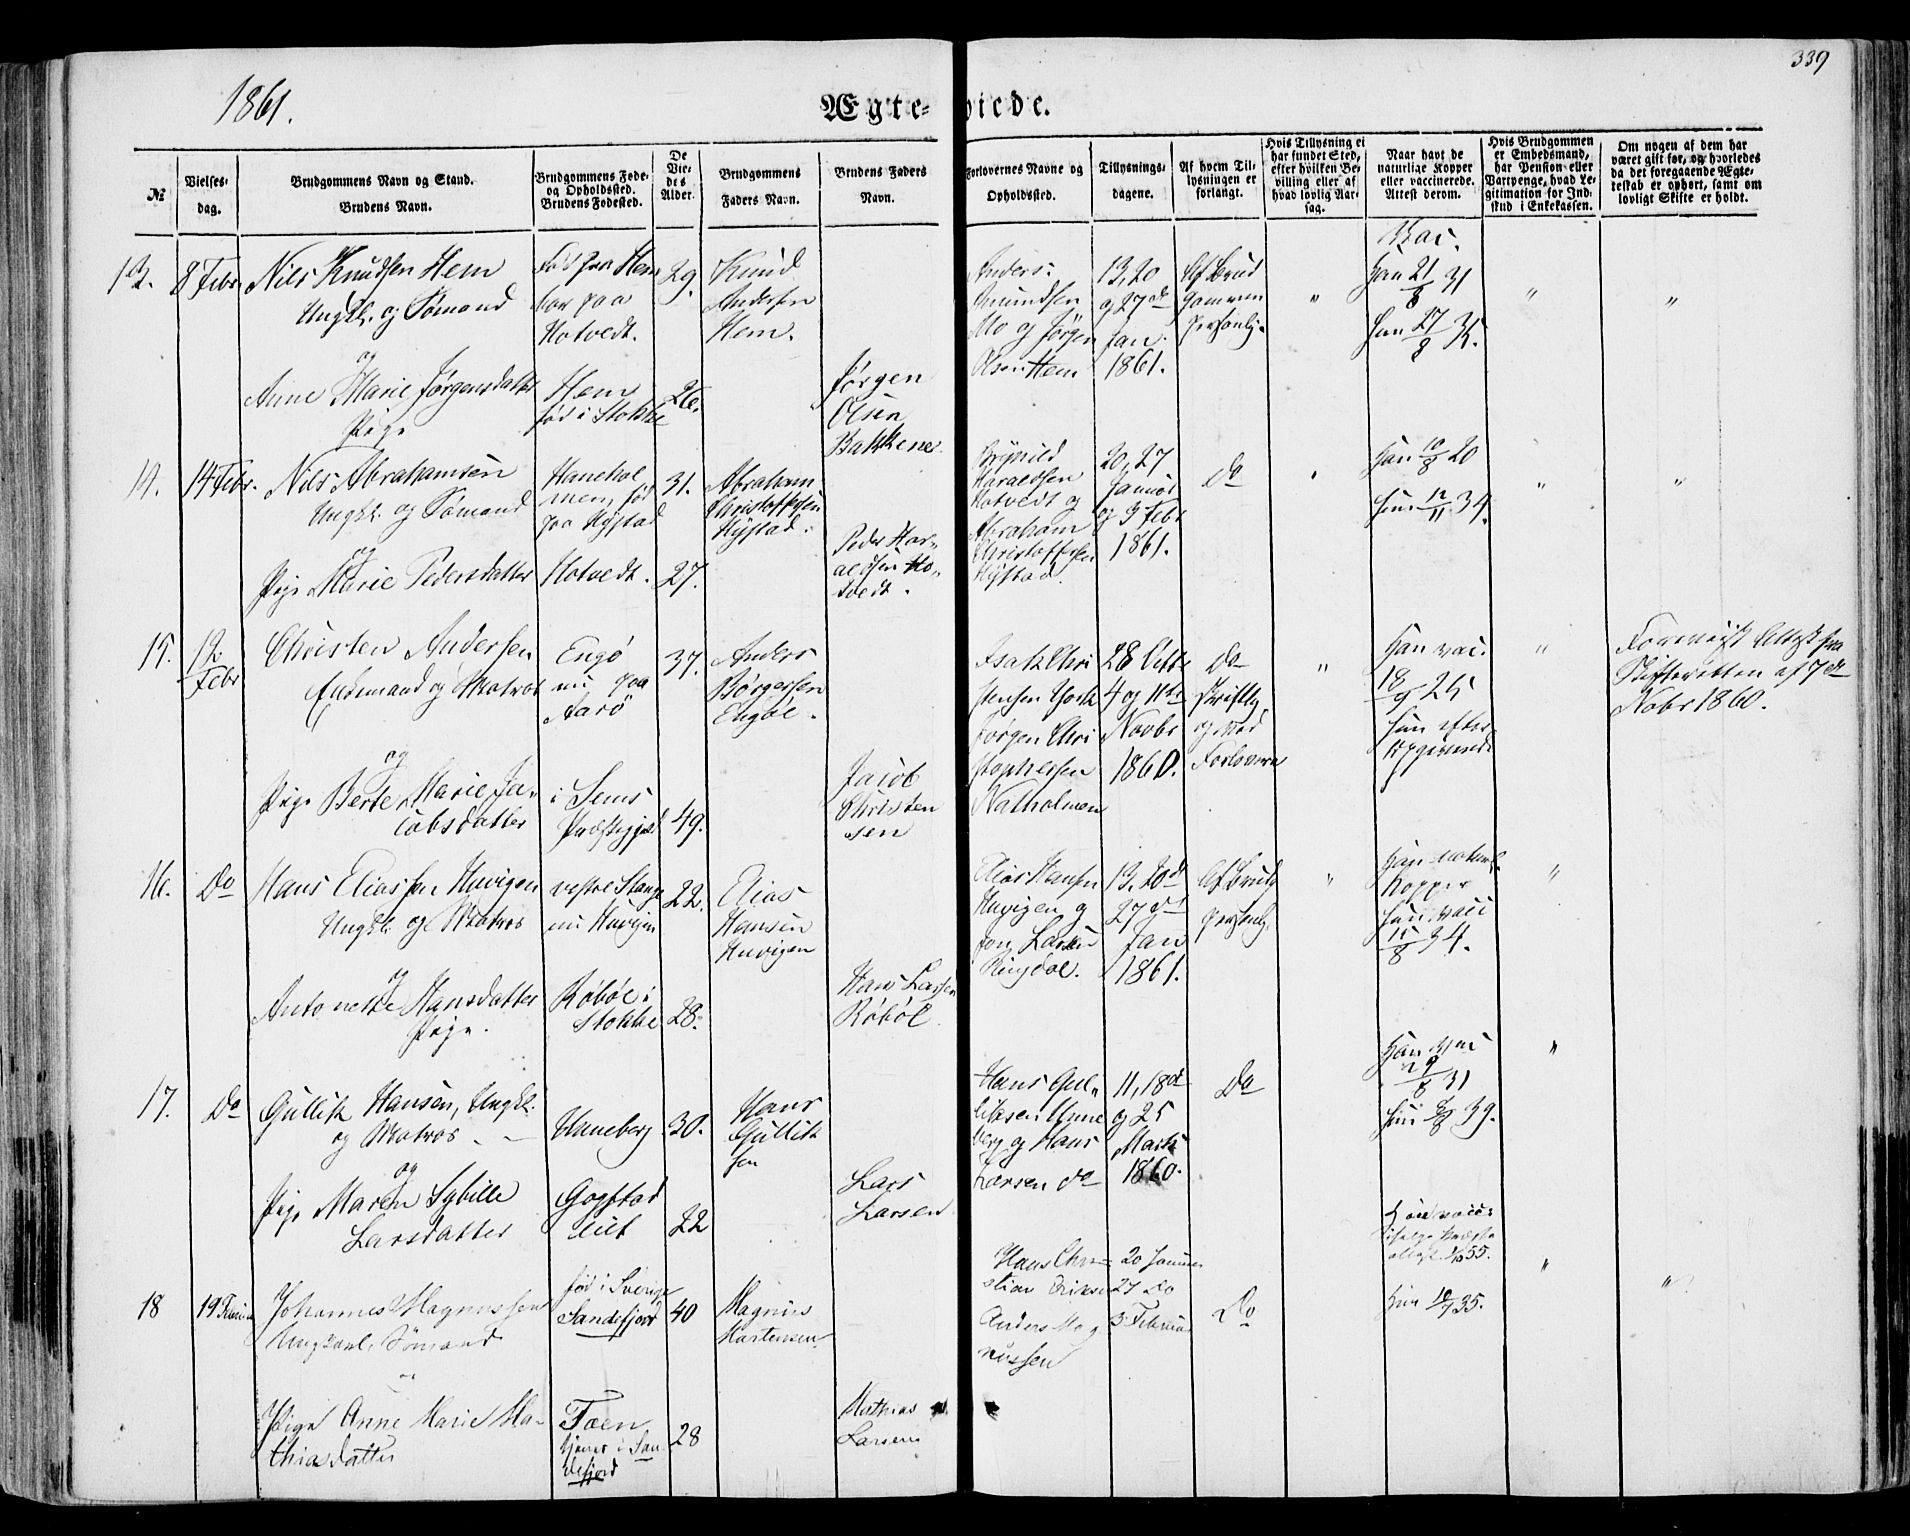 339
1861.
Ægte-
viede.
No
Vielses-
dag.
Brudgommens Navn og Stand.
Brudens Navn.
Brudgommens Føde-
og Opholdssted.
Brudens Fødested.
De
Vie-
des
Alder.
Brudgommens
Faders Navn.
Brudens Faders
Navn.
Forlovernes Navne og
Opholdssted.
Tillysnings-
dagene.
Af hvem Til-
lysningen er
forlangt.
Hvis Tillysning ei
har fundet Sted,
efter hvilken Be-
villing eller af
hvad lovlig Aar-
sag.
Naar havt de
naturlige Kopper
eller vaccinerede.
Attest derom.
Hvis Brudgommen
er Embedsmand,
har Pension eller
Vartpenge, hvad Le-
gitimation for Ind-
skud i Enkekassen.
Om nogen af dem har
været gift før, og hvorledes
da det foregaaende Ægte-
teskab er ophørt, samt om
lovligt Skifte er holdt.
13.
8 Febr.
Nils Knudsen Hem
Ungk. og Sømand
og
Anne Marie Jørgensdatter
Pige
Fød paa Hem
bor paa
Hotvedt.
Hem
fød i Stokke
29.
26.
Knud
Andersen
Hem.
Jørgen
Olsen
Bakkene
Anders
Amundsen
Mo og Jørgen
Olsen Hem
13, 20
og 27de
Jan.
1861.
Af Brud
gommen
personlig.
"
Vac.
Han 21/8 31
Hun 27/8 35.
"
"
14.
14 Febr.
Nils Abrahamsen
Ungk. og Sømand
og
Pige Marie Pedersdatter
Hanehol
men, fød
paa Hystad
Hotvedt.
31.
27.
Abraham
Christoffersen
Hystad.
Peder Har-
aldsen Ho-
tvedt.
Haraldsen
Hotvedt og
Abraham
Christoffersen
Hystad.
20, 27
Januar
og 3 Febr
1861.
Do
"
Han 10/8 20
Hun 12/11 34.
"
"
15.
12.
Febr
Christen Andersen
Enkemand og Matros
og
Pige Berte Marie Ja-
cobsdatter
Engø
nu paa
Aarø
i Sems
Præstegjæld
37.
49.
Anders
Børgersen
Engøe.
Jacob
Christen
sen
Isak Chri
stensen
Jørgen Chri
stophersen
Natholmen
28 Octb
4 og 11te
Novbr
1860.
Do
skriftlig
og med
Forlovere
"
Han vac.
18/9 25
Hun efter
Opgivende
"
Forevist Attest fra
Skifteretten af 7de
Nobr 1860.
16.
Do
Hans Eliassen Huvigen
Ungk. og Matros
og
Antonette Hansdatter
Pige.
vestre Stange
nu Huvigen
Røbøl i
Stokke
22.
28.
Elias
Hansen
Huvigen
Hans Larsen
Røbøl
Elias Hansen
Huvigen og
Larsen
Ringdal.
13, 20de
27de
Jan
1861.
Af Brudg
personlig.
"
Han naturl.
Kopper
Hun vacc
15/8 34.
"
17.
Do
Gullik Hansen, Ungk.
og Matros
og
Pige Maren Sybille
Larsdatter
Unneberg
Gogstad
30.
22
Hans
Gullik
sen
Lars
Larsen
Hans Gul-
liksen Unne
berg og Hans
Larsen do
11, 18de
og 25
Marts
1860.
Do
Han vac
29/8 31
Hun 39.
"
18
19 Februar
Johannes Magnussen
Ungkarl, Sømand
og
Pige Anne Marie Ma-
thiasdatter
fød i Sverige
Sandefjord
Foen
tjener i San
defjord
40
28
Magnus
Martensen
Mathias
Larsen
Hans Chri-
stian Eriksen
Anders Mag
nussen
20 Januar
27 do
3 Februar
Do
Han vacc:
ifølge Præste
attest 55.
Hun 10/7 35.
"
"